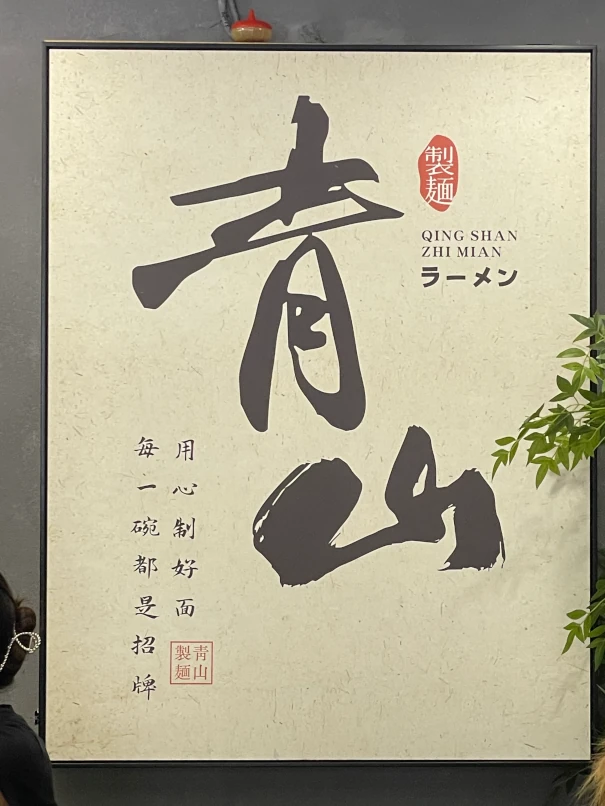 青山
製麺
QING SHAN
ZHI MIAN
ラーメン
用心制好面
每一碗都是招牌
青山
製麺